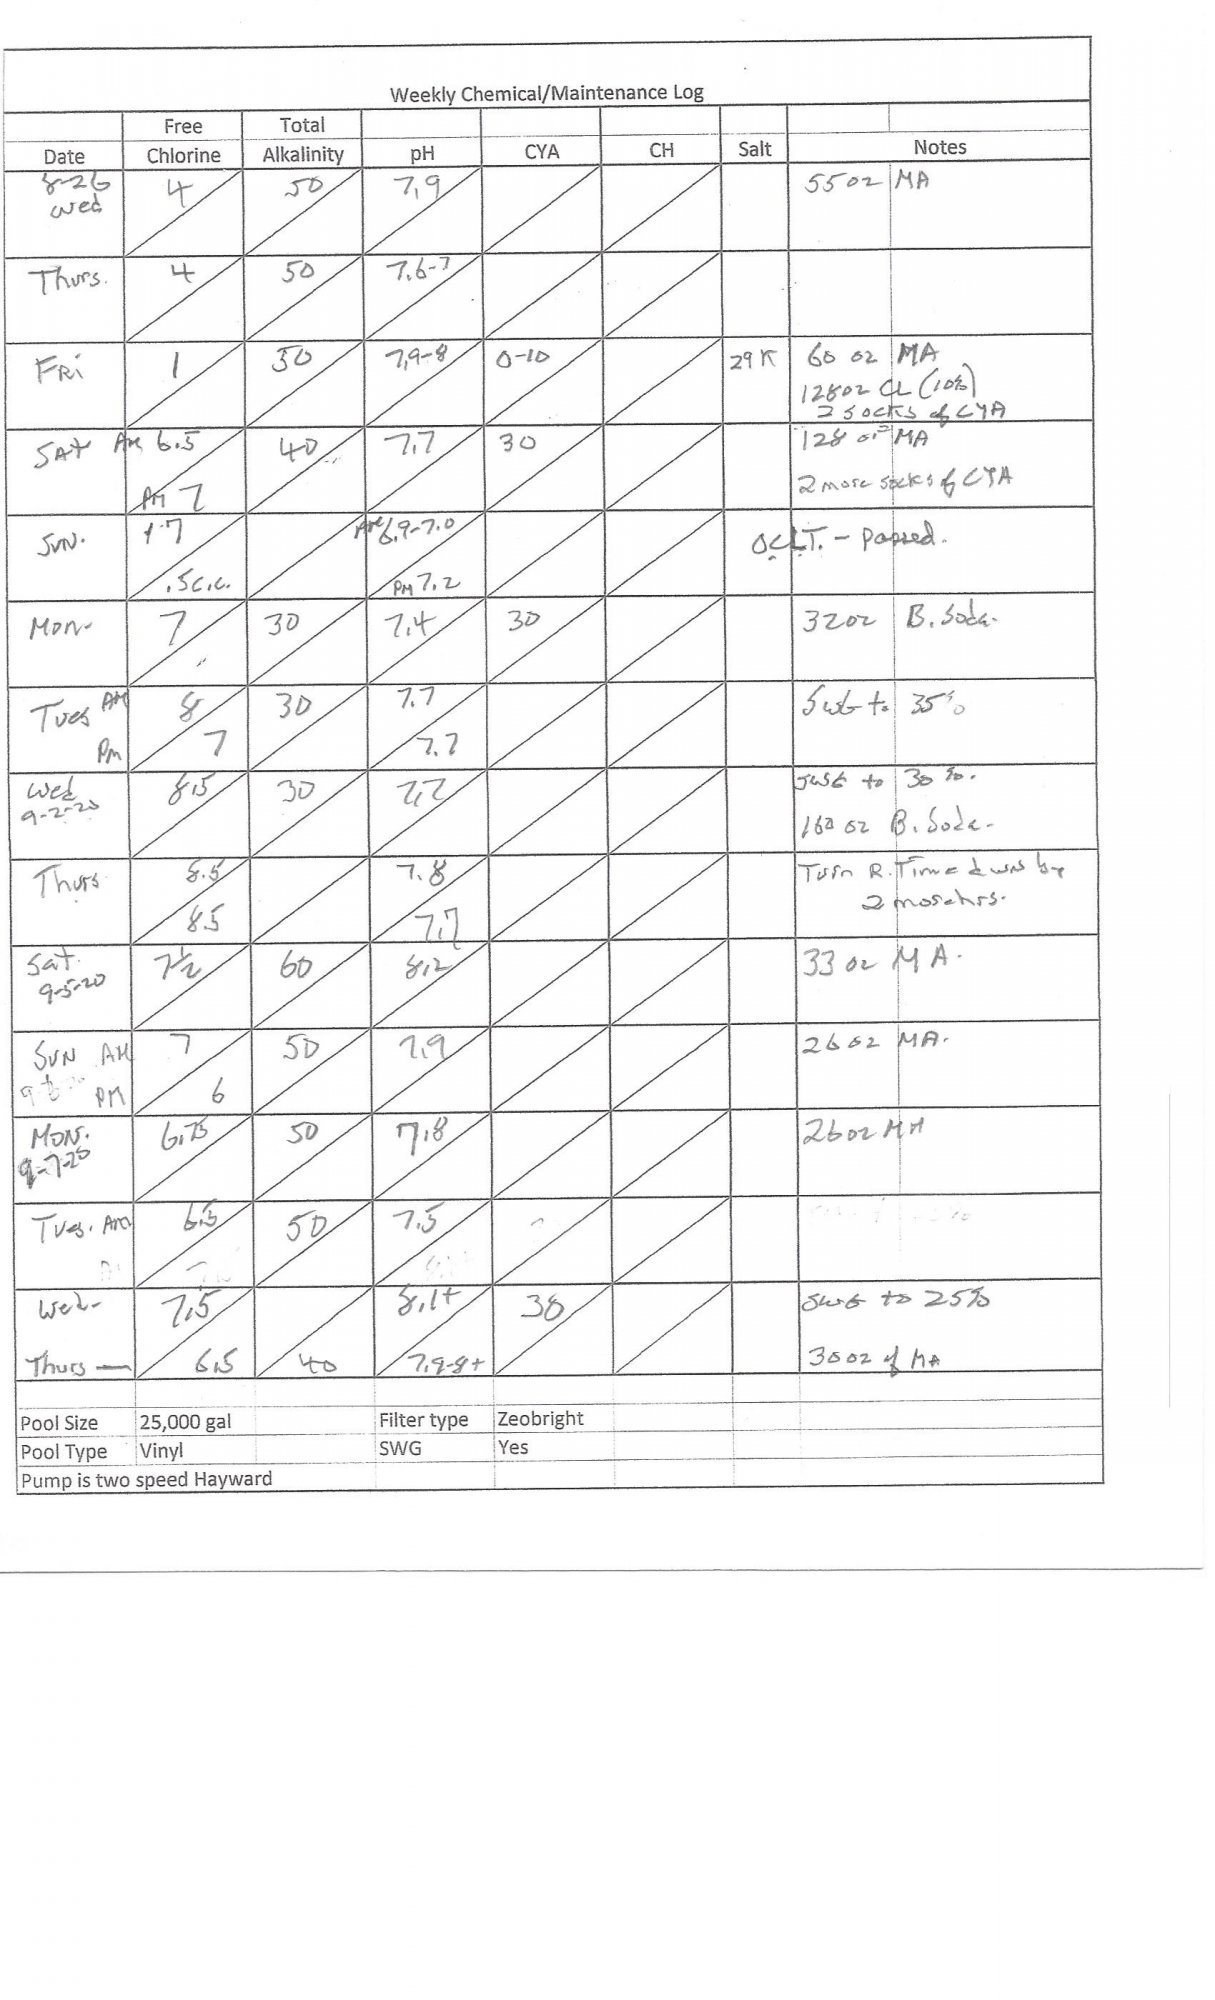 Weekly Chemical/Maintenance Log
Free Total
Date Chlorine Alkalinity pH CYA CH Salt Notes
8-26 4 50 7.9 55 oz MA
Wed
Thurs. 4 50 7.6-7
FRi 1 50 7.9-8 0-10 29 K 60 oz MA
128oz CL (10%)
2 socks of CYA
SAT AM 6.5 40 7.7 30 128 oz MA
PM 7 2 more socks of CYA
SUN. 7 AM 6.9-7.0 OCLT. - Passed.
.5 c.c. PM 7.2
Mon- 7 30 7.4 30 32oz B. Soda.
Tues AM 8 30 7.7 SWG to 35%
PM 7 7.7
Wed 8.5 30 7.7 SWG to 30%.
9-2-20 160 oz B. Soda-
Thurs 8.5 7.8 Turn R. Time down by
8.5 7.7 2 more hrs.
Sat. 7½ 60 8.2 33 oz MA.
9-5-20
SUN AM 7 50 7.9 26oz MA.
PM 6
MON. 6.75 50 7.8 26oz MA
9-7-20
Tues. AM 6.5 50 7.5
Wed- 7.5 8.1+ 30 SWG to 25%
Thurs — 6.5 40 7.9-8+ 30oz of MA
Pool Size 25,000 gal Filter type Zeobright
Pool Type Vinyl SWG Yes
Pump is two speed Hayward